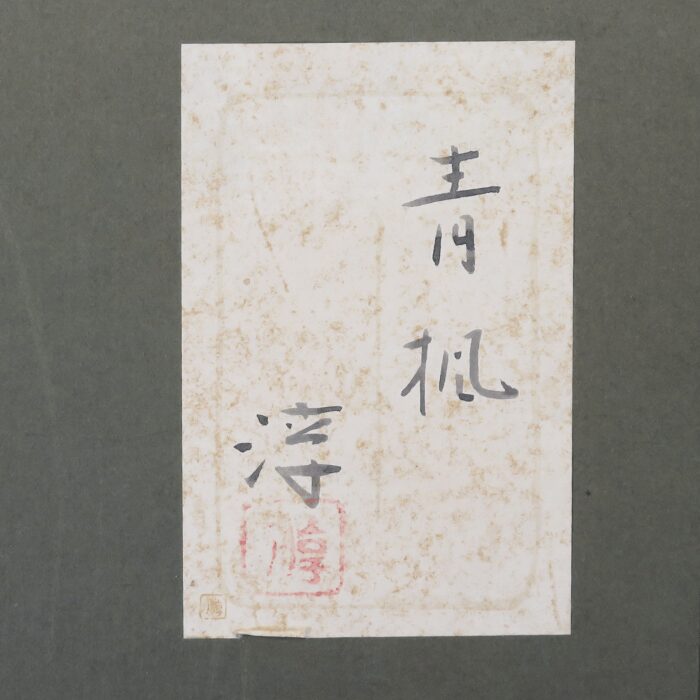 青楓
淳
淳